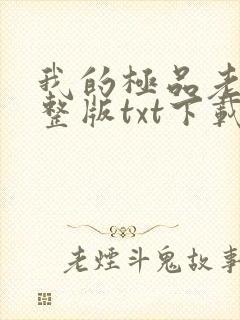 我的極品老
整版txt下載
老煙斗鬼故事